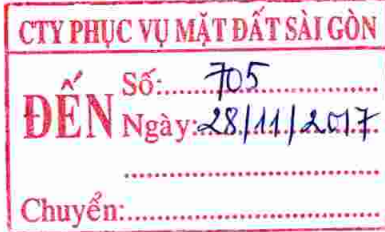 CTY PHỤC VỤ MẶT ĐẤT SÀI GÒN
ĐẾN
Số:.......705..................
Ngày:28/11/2017
..............................
Chuyển:..............................